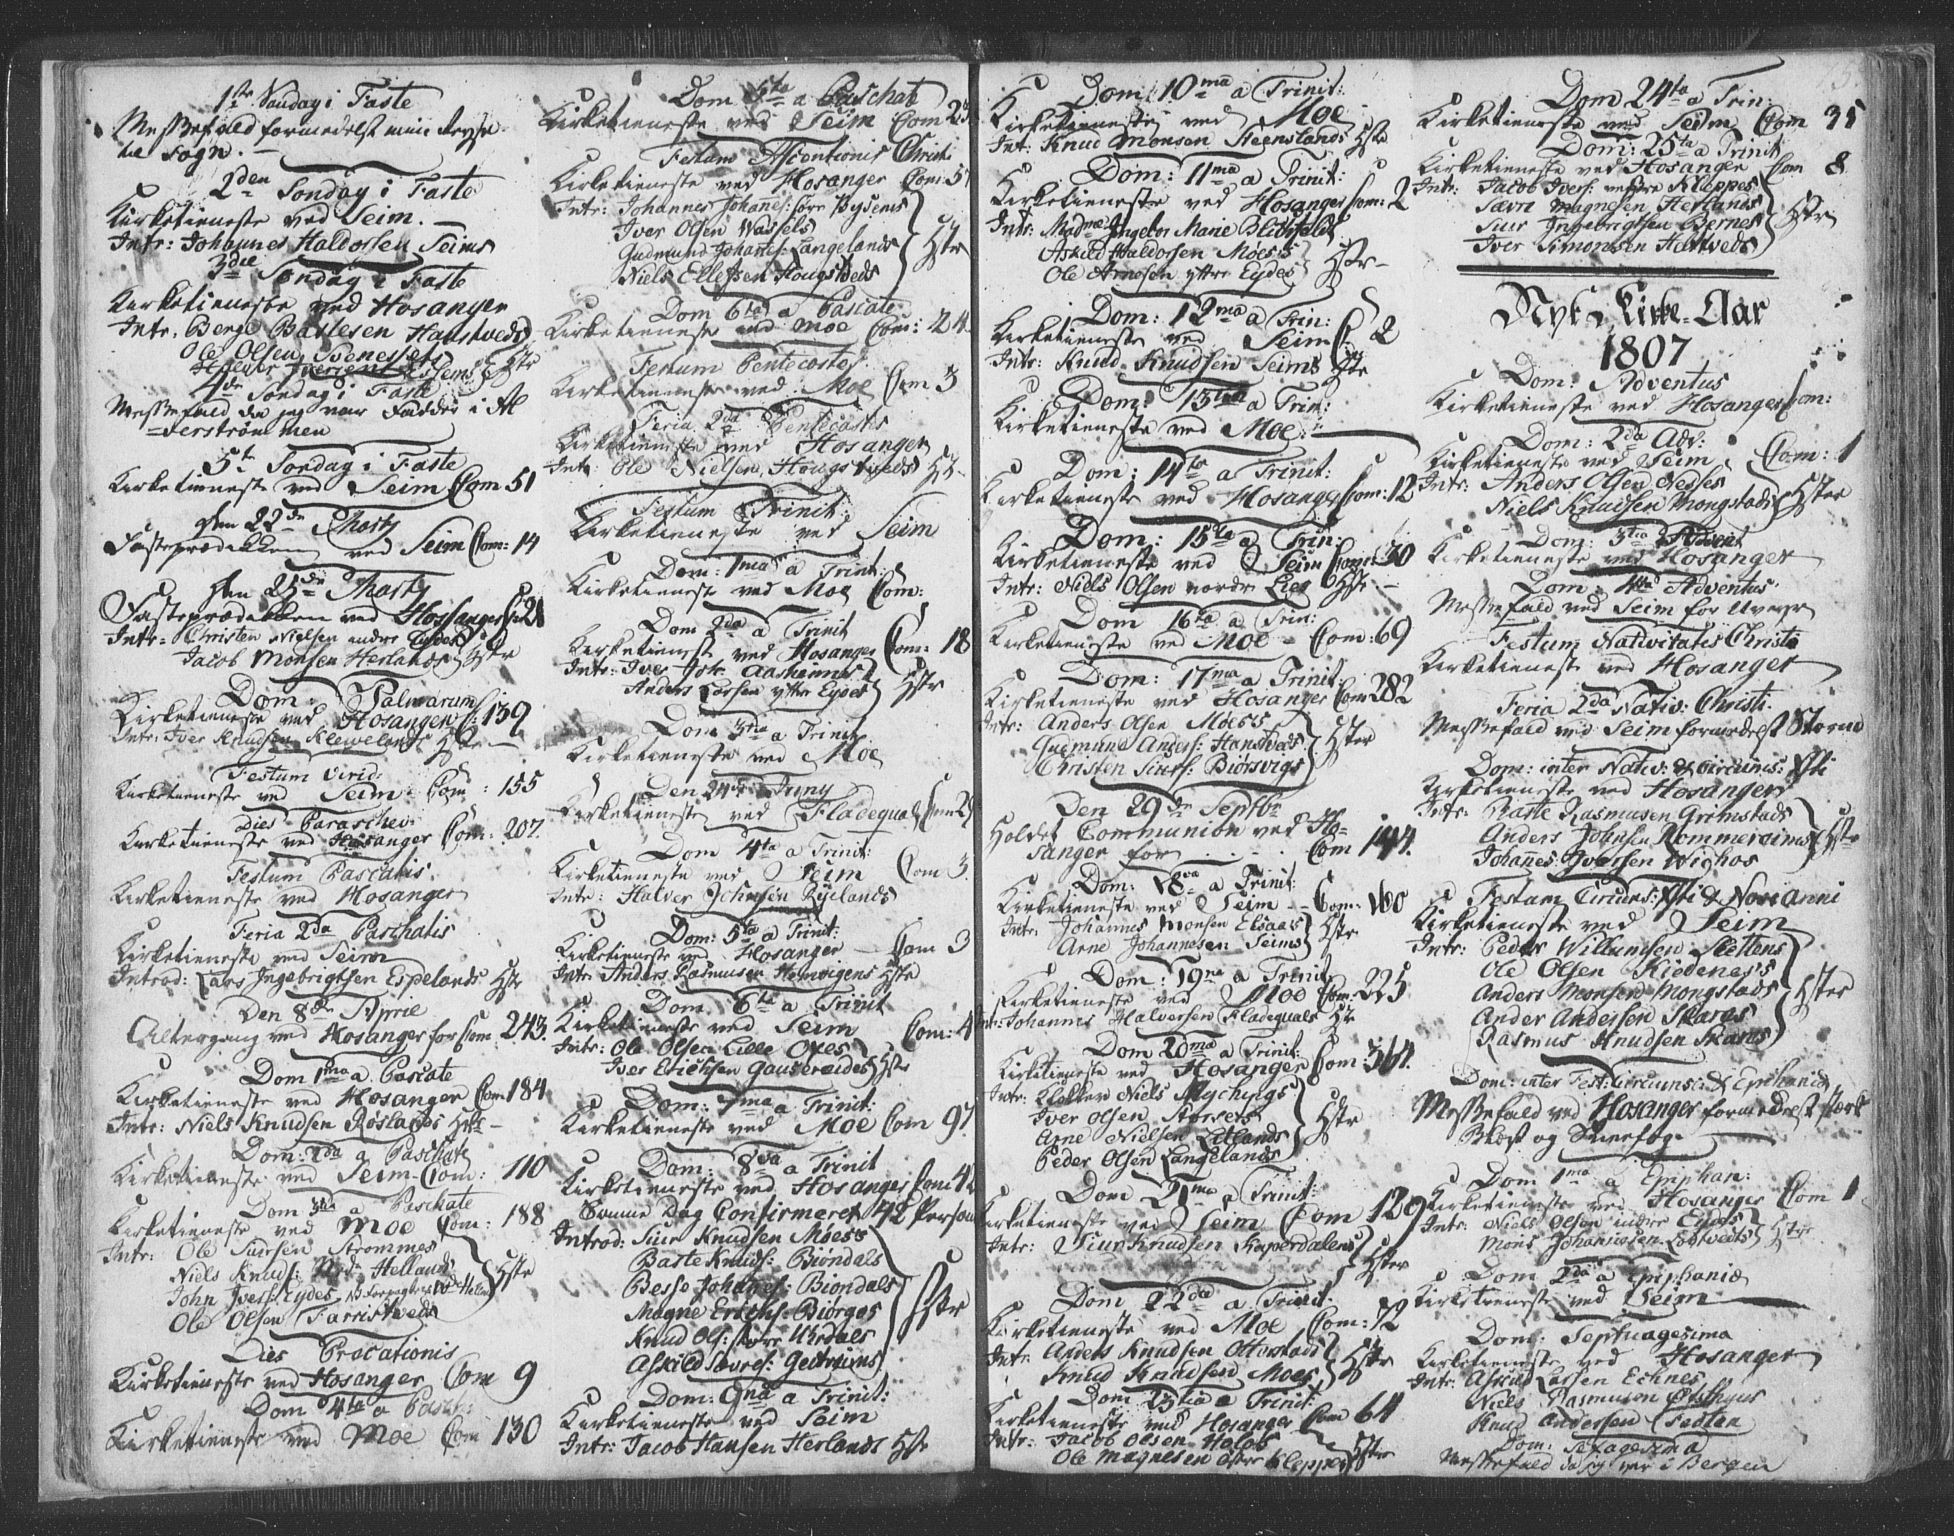 1ste Søndag i Faste
Messefald formedelst min Reyse
til Sogn. —
2den Søndag i Faste
Kirketieneste ved Seim. —
Intr: Johannes Haldorsen Seims
3die Søndag i Faste
Kirketieneste ved Hosanger
Intr. Berge Baltesen Hanstveds
Ole Olsen
Hstr
4de Søndag i Faste
Messefald da jeg var Fadder i Al
verstrømmen
5te Søndag i Faste
Kirketieneste ved Seim Com 51
Den 22de Marty
Fasteprædikken ved Seim Com: 14
Den 25de Marty
Fasteprædikken ved Hossanger C: 21
Intr: Christen Nielsen indre Eydes
Jacob Monsen Herlands Hstr
Dom: Palmarum
Kirketieneste ved Hosanger C: 139
Intr: Iver Knudsen Klevelands Hstr
Festum Virid:
Kirketieneste ved Seim Com: 155
Dies Paraschev:
Kirketieneste ved Hosanger Com: 207.
Festum Pascatis.
Kirketieneste ved Hosanger
Feria 2da Paschatis
Kirketieneste ved Seim
Introd: Lars Ingebrigtsen Espelands Hstr
Den 8de Aprile
Altergang ved Hosanger for Com 243.
Dom 1ma a Pascate
Kirketieneste ved Hosanger Com: 184
Intr: Niels Knudsen Røslands Hstr —
Dom: 2da a Paschate
Kirketieneste ved Seim Com: 110
Dom 3tia a Paschate
Kirketieneste ved Moe Com: 188
Intr: Ole Siursen Strømmes
Niels Knuds: Hellands
John Ivers: Eydes
Ole Olsen Farristveds
Hstr
Dies Procationis
Kirketieneste ved Hosanger Com 9
Dom 4ta a Pasc:
Kirketieneste ved Moe Com 130
Dom 5ta a Paschate
Kirketieneste ved Seim Com 23
Festum Ascentionis Christi
Kirketieneste ved Hosanger Com: 57
Intr: Johannes Johanes: søre Bysems
Iver Olsen Wassels
Gudmund Johanes: Langelands
Niels Ellefsen Hougstveds
Hstr
Dom 6ta a Pascate
Kirketieneste ved Moe Com: 24.
Festum Pentecostes
Kirketieneste ved Moe Com 3
Feria 2da Pentecostes
Kirketieneste ved Hosanger
Intr: Ole Nielsen Hougstveds Hstr
Festum Trinit:
Kirketieneste ved Seim
Dom: 1ma a Trinit:
Kirketieneste ved Moe Com:
Dom 2da a Trinit
Kirketieneste ved Hosanger Com: 18
Intr: Iver Joh: Aasheims
Anders Larsen yttre Eydes Hstr
Dom 3tia a Trinit.
Kirketieneste ved Moe
Den 24de Juny
Kirketieneste ved Fladequal Com 29
Dom 4ta a Trinit:
Kirketieneste ved Seim Com 3.
Intr: Halvor Johnsen Rylands
Dom: 5ta a Trinit:
Kirketieneste ved Hosanger — Com 3
Intr: Anders Rasmusen Helvigens Hstr
Dom 6ta a Trinit
Kirketieneste ved Seim Com: 4
Intr: Ole Olsen Lille Oxes
Iver Erichsen Gausereides Hstr
Dom: 7ma a Trinit:
Kirketieneste ved Moe Com 97.
Dom: 8va a Trinit
Kirketieneste ved Hosanger Com 42
Samme Dag Confirmeret 42 Person
Introd: Siur Knudsen Møess
Baste Knuds: Biøndals
Besse Johanes: Biøndals
Magne Erichs: Biørges
Knud Ols: søre Urdals
Askild Sevres: Geitriims
Hstr
Dom: 9na a Trinit:
Kirketieneste ved Seim
Intr: Jacob Hansen Herlands Hstr
Dom 10ma a Trinit:
Kirketieneste ved Moe
Int: Knud Monsen Steenslands Hstr
Dom: 11ma a Trinit:
Kirketieneste ved Hosanger Com: 2
Intr: Madme Ingebor Marie Blichfeldt
Askild Haldorsen Møess
Ole Arnesen yttre Eydes
Hstr —
Dom: 12ma a Trin:
Kirketieneste ved Seim C: 2
Intr: Knud Knudsen Seims Hstr
Dom: 13tia a Trin:
Kirketieneste ved Moe: —
Dom: 14ta a Trinit:
Kirketieneste ved Hosanger Com: 12
Dom: 15ta a Trin:
Kirketieneste ved Seim Com: 30
Intr: Niels Olsen nordre Lies Hstr —
Dom 16ta a Trin:
Kirketieneste ved Moe — Com: 69
Dom: 17ma a Trinit:
Kirketieneste ved Hosanger Com 282
Intr: Anders Olsen Møess
Gudmund Anders: Hanstveds
Christen Siurs: Biørsvigs
Hstr
Den 29de Septbr
Holdet Communion ved Ho=
sanger for . . . . Com 144.
Dom: 18va a Trinit:
Kirketieneste ved Seim — Com: 100
Intr: Johannes Monsen Elsaas
Arne Johannesen Seims Hstr
Dom: 19na a Trinit
Kirketieneste ved Moe Com: 225
Intr: Johannes Halversen Fladequals Hstr
Dom 20ma a Trinit:
Kirketieneste ved Hosanger Com 364.
Intr: Klokker Niels Mychings
Iver Olsen Storsets
Arne Nielsen Litlands
Peder Olsen Langelands
Hstr
Dom 21ma a Trinit:
Kirketieneste ved Seim Com 129
Intr: Siur Knudsen Kaperdalens Hstr
Dom 22da a Trinit:
Kirketieneste ved Moe Com: 72
Intr: Anders Knudsen Otterstads
Knud Knudsen Moes Hstr
Dom 23tia a Trinit:
Kirketieneste ved Hosanger Com 64
Intr: Jacob Olsen Holds
Ole Magnesen Kleppes Hstr
Dom 24ta a Trin:
Kirketieneste ved Seim Com 35
Dom: 25ta a Trinit
Kirketieneste ved Hosanger Com 8
Intr: Jacob Ivers: vestre Kleppes
Sævre Magnesen Herlands
Siur Ingebrigtsen Bernes
Iver Simonsen Hartveds
Hstr
Nyt Kirke-Aar
1807
Dom: Adventus
Kirketieneste ved Hosanger Com:
Dom: 2da Adv:
Kirketieneste ved Seim Com: 1
Intr: Anders Olsen Nesses
Niels Knudsen Mongstads Hstr
Dom: 3tia Advent
Kirketieneste ved Hosanger
Dom: 4ta Adventus
Messefald ved Seim for Uveyr
Festum Nativitatis Christi
Kirketieneste ved Hosanger
Feria 2da Nativ: Christi.
Messefald ved Seim formedelst Storm
Dom: inter Nativ: & Circumcis: Xsti
Kirketieneste ved Hosanger
Intr: Baste Rasmusen Grimstads
Anders Johnsen Rommereims
Johanes Iversen Wighos
Hstr
Festum Circumc: Xsti & Novi anni
Kirketieneste ved Seim
Intr: Peder Willumsen Slettens
Ole Olsen Kiedeness
Anders Monsen Mongstads
Ander Andersen Skares
Rasmus Knudsen Skares
Hstr
Dom: inter Fest: Circumc: & Epiphanias
Messefald ved Hosanger formedelst stærk
Blæst og Sneefog. —
Dom 1ma a Epiphan:
Kirketieneste ved Hosanger Com 1
Intr: Niels Olsen indre Eydes
Mons Johannesen Loftveds Hstr
Dom 2da a Epiphaniæ
Kirketieneste ved Seim —
Dom: Septuagesima
Kirketieneste ved Hosanger
Intr: Askild Larsen Echnes
Niels Rasmusen
Knud Andersen Sedlan
Dom: Sexagesima
Messefald da jeg var i Bergen